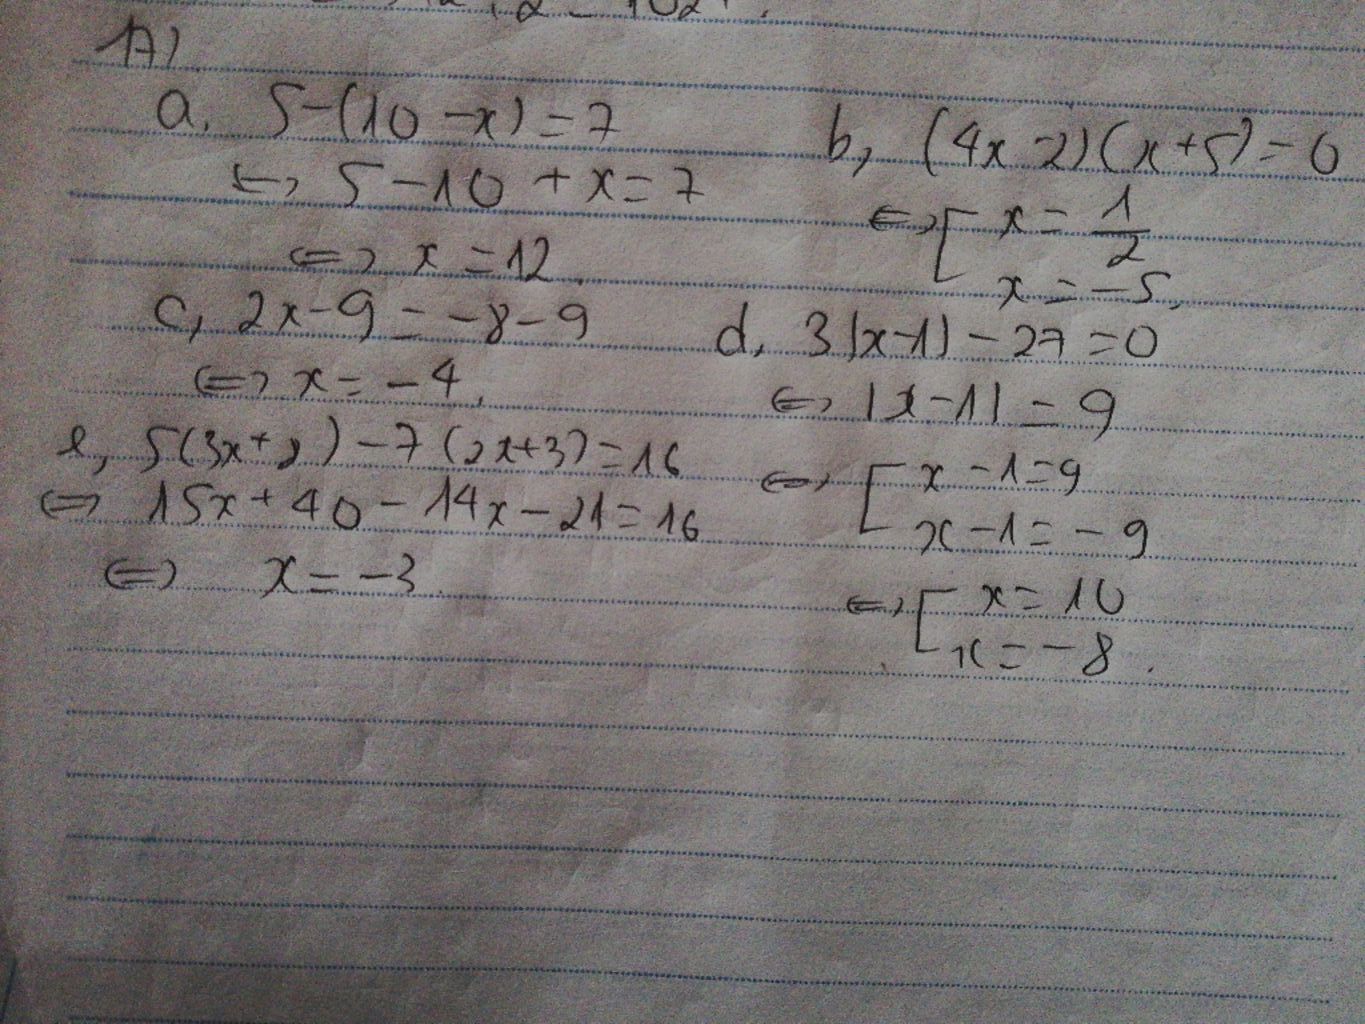 17)
a, 5-(10-x)=7
<=> 5-10+x=7
<=> x=12.
b, (4x-2)(x+5)=0
<=> [ x = 1/2
x = -5,
c, 2x-9 = -8-9
<=> x = -4.
d, 3|x-1| - 27 = 0
<=> |x-1| = 9
<=> [ x-1=9
x-1=-9
<=> [ x=10
x=-8.
e, 5(3x+8)-7(2x+3)=16
<=> 15x+40-14x-21=16
<=> x=-3.